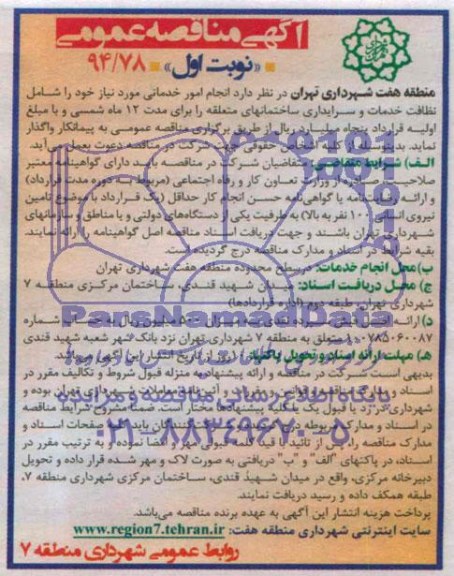 آگهی مناقصه عمومی
«نوبت اول» ۹۴/۷۸
منطقه هفت شهرداری تهران در نظر دارد انجام امور خدماتی مورد نیاز خود را شامل
نظافت خدمات و سرایداری ساختمانهای متعلقه را برای مدت ۱۲ ماه شمسی و با مبلغ
اولیه قرارداد پنجاه میلیارد ریال از طریق برگزاری مناقصه عمومی به پیمانکار واگذار
نماید. بدینوسیله از کلیه اشخاص حقوقی جهت شرکت در مناقصه دعوت بعمل می‌آید.
الف) شرایط متقاضی: متقاضیان شرکت در مناقصه باید دارای گواهینامه معتبر
صلاحیت صادره از وزارت تعاون کار و رفاه اجتماعی (مربوط به دوره مدت قرارداد)
و ارائه رضایتنامه یا گواهی‌نامه حسن انجام کار حداقل (یک قرارداد با موضوع تامین
نیروی انسانی ۱۰۰ نفر به بالا) به ظرفیت یکی از دستگاههای دولتی و یا مناطق و سازمانهای
شهرداری تهران باشند و جهت دریافت اسناد مناقصه اصل گواهینامه را ارائه نمایند.
بقیه شرایط در اسناد و مدارک مناقصه درج گردیده است.
ب) محل انجام خدمات: در سطح محدوده منطقه هفت شهرداری تهران
ج) محل دریافت اسناد: میدان شهید قندی، ساختمان مرکزی منطقه ۷
شهرداری تهران، طبقه دوم (اداره قراردادها)
د) ارائه فیش سپرده نقدی به میزان ریال به حساب شماره
۱۰۰۷۸۵۰۶۰۰۸۷ متعلق به منطقه ۷ شهرداری تهران نزد بانک شهر شعبه شهید قندی
هـ) مهلت ارائه اسناد و تحویل پاکتها: روز از تاریخ انتشار این آگهی می‌باشد.
بدیهی است شرکت در مناقصه و ارائه پیشنهاد به منزله قبول شروط و تکالیف مقرر در
اسناد و مدارک مناقصه و قوانین و مقررات و آئین‌نامه معاملات شهرداری تهران بوده و
شهرداری در رد یا قبول یک یا کلیه پیشنهادها مختار است. ضمنا مشروح شرایط مناقصه
در اسناد و مدارک مربوطه شرکت‌کنندگان باید صفحات اسناد و
مدارک مناقصه را پس از تائید با قید کلمه قبولی مهر و امضا نموده و به ترتیب مقرر در
اسناد، در پاکتهای "الف" و "ب" دریافتی به صورت لاک و مهر شده قرار داده و تحویل
دبیرخانه مرکزی، واقع در میدان شهید قندی، ساختمان مرکزی شهرداری منطقه ۷،
طبقه همکف داده و رسید دریافت نمایند.
پرداخت هزینه انتشار این آگهی به عهده برنده مناقصه می‌باشد.
سایت اینترنتی شهرداری منطقه هفت: www.region7.tehran.ir
روابط عمومی شهرداری منطقه ۷
ParsNamadData
پایگاه اطلاع رسانی مناقصه و مزایده
۰۲۱-۸۸۳۴۹۶۷۰-۵